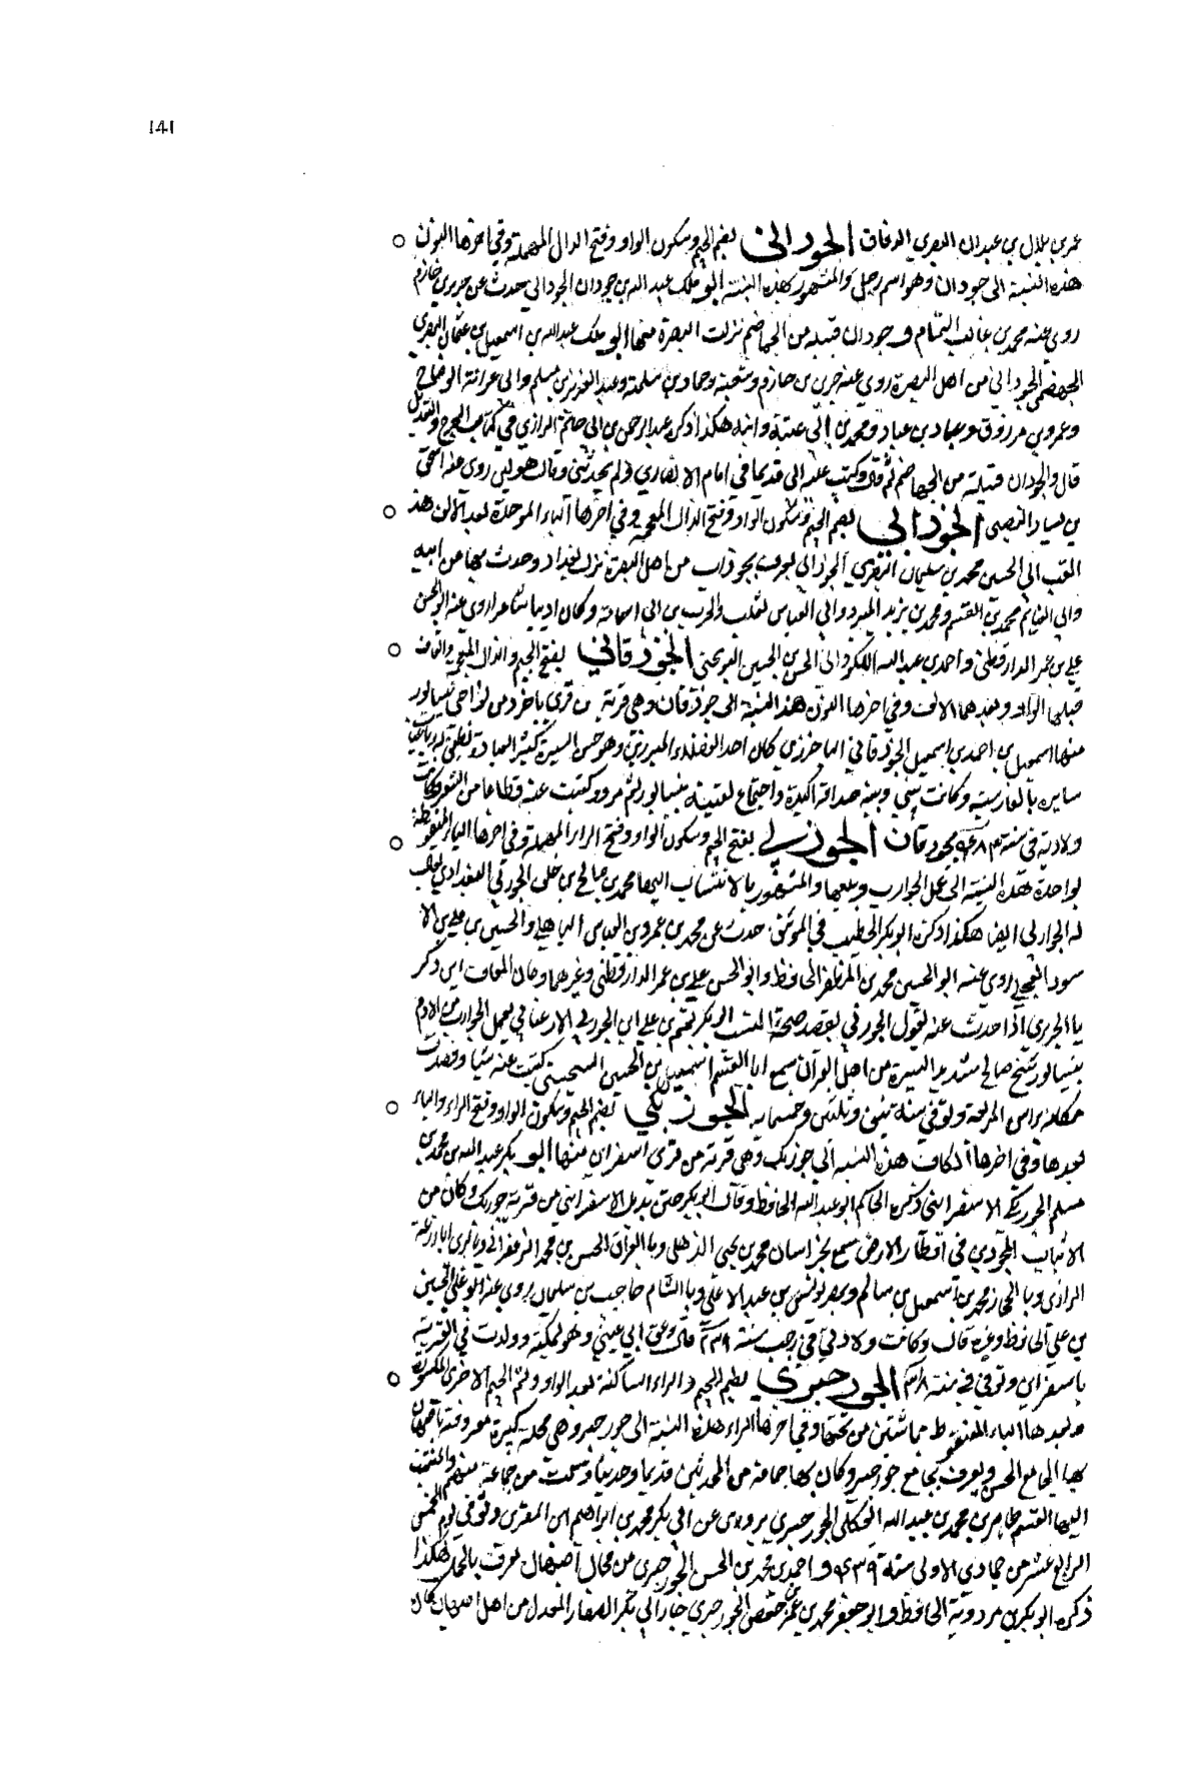 141
عمر بن بلال بن عبدان البصري الدقاق الجوداني بضم الجيم وسكون الواو وفتح الدال المهملة وفي اخرها النون
هذه النسبة الى جودان وهو اسم رجل والمشهور بهذه النسبة ابو ملك عبد الله بن جودان الجوداني يحدث عن جرير بن حازم
روى عنه محمد بن غالب التمام وجودان قبيلة من الجهاضم نزلت البصرة منها ابو ملك عبد الله بن اسمعيل بن عثمان البصري
الجهضمي الجوداني من اهل البصرة روى عنه جرير بن حازم وشعبة وحماد بن سلمة وعبد العزيز بن مسلم وابى عوانة الوضاح
وعمرو بن مرزوق وعباد بن عباد ومحمد بن ابي هكذا ذكره عبد الرحمن بن ابي حاتم الرازي في كتاب الجرح والتعديل
قال والجودان قبيلة من الجهاضم ثم قال وكتب عنه ابى قديما في ايام الانصاري ولم يحدثني وقال هو لين روى عنه اسحق
بن سيار النصيبي الجوذابي بضم الجيم وسكون الواو وفتح الذال المعجمة وفي اخرها الباء الموحدة بعد الالف هذا
اللقب ابي الحسين محمد بن سليمان البصري الجوذابي يعرف بجوذاب من اهل البصرة نزل بغداد وحدث بها عن ابيه
وابي محمد بن القسم ومحمد بن يزيد المبرد وابي العباس ثعلب والحرث بن ابى اسامة وكان اديبا شاعرا روى عنه ابو الحسن
علي بن عمر الدارقطني واحمد بن عبد الله بن الحسين الجوذقاني بفتح الجيم والذال المعجمة والقاف
قبلها الواو وبعدهما الالف وفي اخرها النون هذه النسبة الى جوذقان وهي قرية من قرى باخرز من نواحي نيسابور
منها اسمعيل بن احمد بن اسمعيل الجوذقاني الباخرزي كان احد الفضلاء المبرزين وهو حسن السيرة كثير العبادة
سايره بالفارسية وكانت بيني وبينه صداقة اكيدة واجتماع لقيته بنيسابور ثم مرو وكتبت عنه من الشعر وكانت
ولادته في سنة بجوذقان الجوربي بفتح الجيم وسكون الواو وفتح الراء المهملة وفي اخرها الباء المنقوطة
بواحدة هذه النسبة الى عمل الجوارب وبيعها والمشهور بالانتساب اليها محمد بن صالح بن خلف الجوربي البغدادي يقال
له الجواربي ايضا هكذا ذكره ابو بكر الخطيب في حدث عن محمد بن عمرو بن العباس الباهلي والحسين بن علي بن الا
سود العجلي روى عنه ابو الحسين محمد بن المظفر الحافظ وابو الحسن علي بن عمر الدارقطني وغيرهما وكان المعافى ابن زكر
يا الجريري اذا حدث عنه يقول الجوربي يقصد صحة النسب ابو بكر بن علي ابن الجوربي يعمل الجوارب من الادم
بنيسابور شيخ صالح سديد السيرة من اهل القرآن سمع ابا القسم اسمعيل بن الحسين كتبت عنه شيئا
مكانه براس المربعة وتوفي سنة وثلثين وخمسمايه الجوربكي بضم الجيم وسكون الواو وفتح الراء والباء
بعدها وفي اخرها الكاف هذه النسبة الى جوربك وهي قرية من قرى اسفراين منها ابو بكر عبد الله بن محمد بن
مسلم الجوربكي الاسفرايني ذكره الحاكم ابو عبد الله الحافظ وقال ابو بكر الاسفرايني من قرية جوربك وكان من
الاثبات المجودين في اقطار الارض سمع بخراسان محمد بن يحيى الذهلي وبالعراق الحسن بن محمد الزعفراني وبالري ابا زرعة
الرازي وبالحجاز محمد بن اسمعيل بن سالم وبمصر يونس بن عبد الاعلى وبالشام حاجب بن سليمان روى عنه ابو علي الحسين
بن علي الحافظ وغيره قال وكانت ولادتي في رجب سنة وولدت في القرية
باسفراين وتوفي في سنة الجورجيري بضم الجيم والراء الساكنة بعد الواو وثم الجيم الاخرى المكسورة
وبعدها الياء المنقوطة باثنتين من تحتها وفي اخرها الراء هذه النسبة الى جورجير وهي محلة كبيرة معروفة باصبهان
بها الجامع الحسن ويعرف بجامع جورجير وكان بها جماعة من المحدثين قديما وحديثا وسمعت من جماعة منهم والمنتسب
اليها القسم طاهر بن محمد بن عبد الله العكلي الجورجيري يروى عن ابي بكر محمد بن ابراهيم ابن المقرئ وتوفي يوم الخميس
الرابع عشر من جمادي الاولى سنة ٤٣٩ واحمد بن محمد بن الحسن الجورجيري من محال اصبهان هكذا
ذكره ابو بكر بن مردوية الحافظ وابو جعفر محمد بن عمر بن حفص الجورجيري جار ابي بكر الصفار المعدل من اهل اصبهان كان